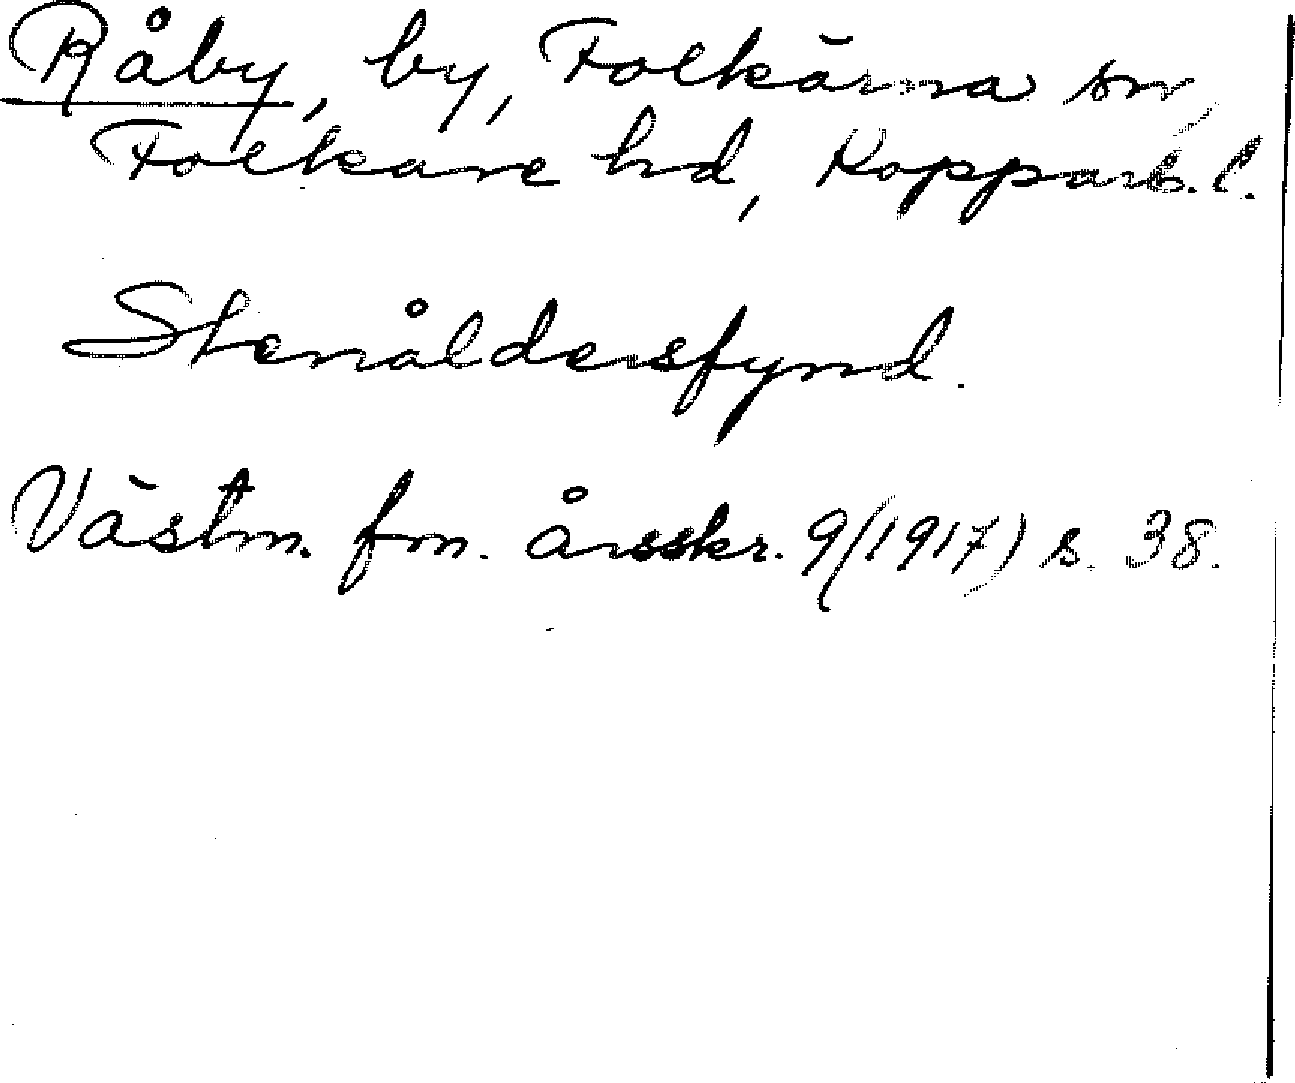 Råby, by, Folkärna sn,
Folkare hd, Kopparb. l.
Stenåldersfynd.
Västm. fm. årsskr. 9(1917) s. 38.